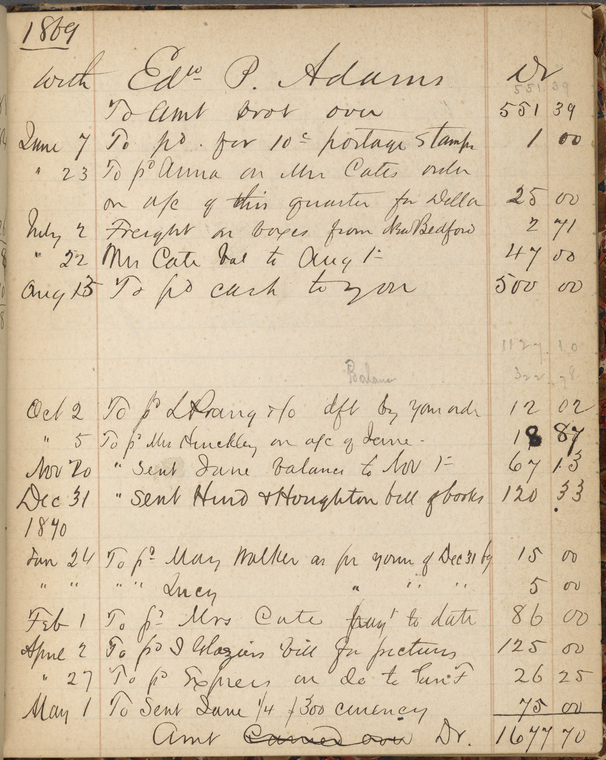 1869
with Edw P. Adams Dr
551 39
To Amt brot over 551 39
June 7 To pd. for 10c postage Stamps 1 00
" 23 To pd Anna on Mrs Cates order
on a/c of this quarter for Della 25 00
July 2 Freight on boxes from New Bedford 2 71
" 22 Mrs Cate bal to Aug 1st 47 00
Aug 13 To pd cash to you 500 00
1127.10
Balance
322.78
Oct 2 To pd L Prang & Co dft by your ordr 12 02
" 5 To pd Mrs Hinckley on a/c of Jane - 18 87
Nov 20 " Sent Jane balance to Nov 1st 67 13
Dec 31 " Sent Hurd & Houghton bill of books 120 33
1870
Jan 24 To pd May Walker as pr yours of Dec 31 by 15 00
" " " " Lucy " " " " 5 00
Feb 1 To pd Mrs Cate to date 86 00
April 2 To pd I Glaziers bill for pictures 125 00
" 27 To pd Express on do to 26 25
May 1 To Sent Jane 1/4 $300 currency 75 00
Amt Carried over Dr. 1677 70